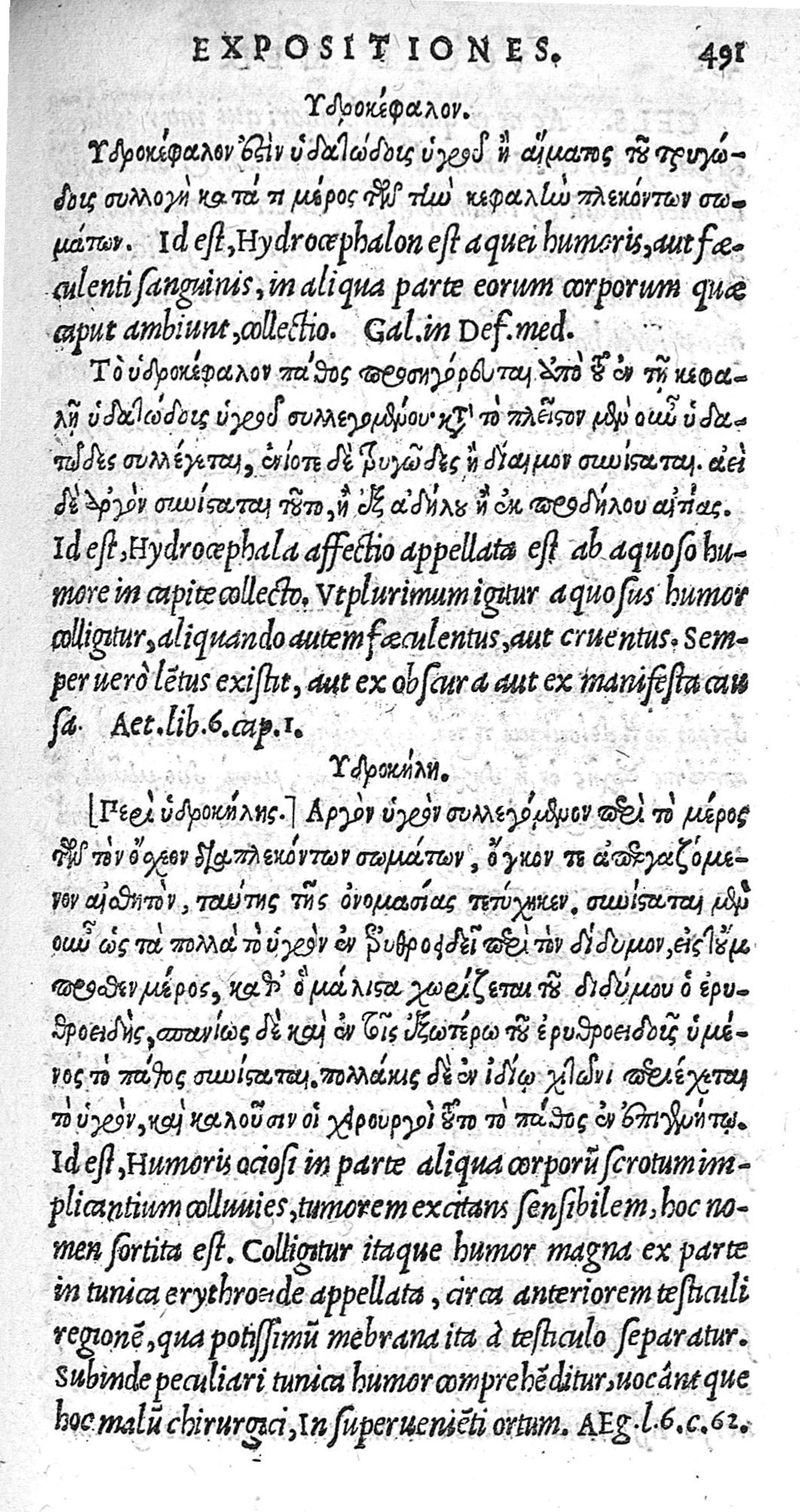 EXPOSITIONES. 491
Υδροκέφαλον.
Υδροκέφαλον ἐστὶν ὑδατώδοις ὑγροῦ ἢ αἵματος τοῦ τρυγώ-
δοις συλλογὴ κατά τι μέρος τῶν τὴν κεφαλὴν πλεκόντων σω-
μάτων. Id eſt, Hydrocephalon eſt aquei humoris, aut fæ-
culenti ſanguinis, in aliqua parte eorum corporum quæ
caput ambiunt, collectio. Gal. in Def. med.
Τὸ ὑδροκέφαλον πάθος προσηγόρευται ἀπὸ τοῦ ἐν τῇ κεφα-
λῇ ὑδατώδοις ὑγροῦ συλλεγομένου· κατὰ τὸ πλεῖστον μὲν οὖν ὑδα-
τῶδες συλλέγεται, ἐνίοτε δὲ τρυγῶδες ἢ δίαιμον συνίσταται. ἀεὶ
δὲ ἀργὸν συνίσταται τοῦτο, ἢ ἐξ ἀδήλου ἢ ἐκ προδήλου αἰτίας.
Id eſt, Hydrocephala affectio appellata eſt ab aquoſo hu-
more in capite collecto. Vtplurimum igitur aquoſus humor
colligitur, aliquando autem fæculentus, aut cruentus. Sem-
per uerò lētus exiſtit, aut ex obſcura aut ex manifeſta cau
ſa. Aet. lib. 6. cap. 1.
Υδροκήλη.
[Περὶ ὑδροκήλης.] Αργὸν ὑγρὸν συλλεγόμενον περὶ τὸ μέρος
τῶν τὸν ὄσχεον διαπλεκόντων σωμάτων, ὄγκον τε ἀπεργαζόμε-
νον αἰσθητὸν, ταύτης τῆς ὀνομασίας τετύχηκεν. συνίσταται μὲν
οὖν ὡς τὰ πολλὰ τὸ ὑγρὸν ἐν ἐρυθροειδεῖ περὶ τὸν δίδυμον, εἰς τοὔμ
προσθεν μέρος, καθ' ὃ μάλιστα χωρίζεται τοῦ διδύμου ὁ ἐρυ-
θροειδὴς, σπανίως δὲ καὶ ἐν τοῖς ἐξωτέρω τοῦ ἐρυθροειδοῖς ὑμέ-
νος τὸ πάθος συνίσταται. πολλάκις δὲ ἐν ἰδίῳ χιτῶνι περιέχεται
τὸ ὑγρὸν, καὶ καλοῦσιν οἱ χειρουργοὶ τοῦτο τὸ πάθος ἐν ἐπιγενήτῳ.
Id eſt, Humoris ocioſi in parte aliqua corporū ſcrotum im-
plicantium colluuies, tumorem excitans ſenſibilem, hoc no-
men ſortita eſt. Colligitur itaque humor magna ex parte
in tunica erythroede appellata, circa anteriorem teſticuli
regionē, qua potiſſimū mēbrana ita à teſticulo ſeparatur.
Subinde peculiari tunica humor comprehēditur, uocántque
hoc malū chirurgici, In ſuperueniēti ortum. AEg. l. 6. c. 62.